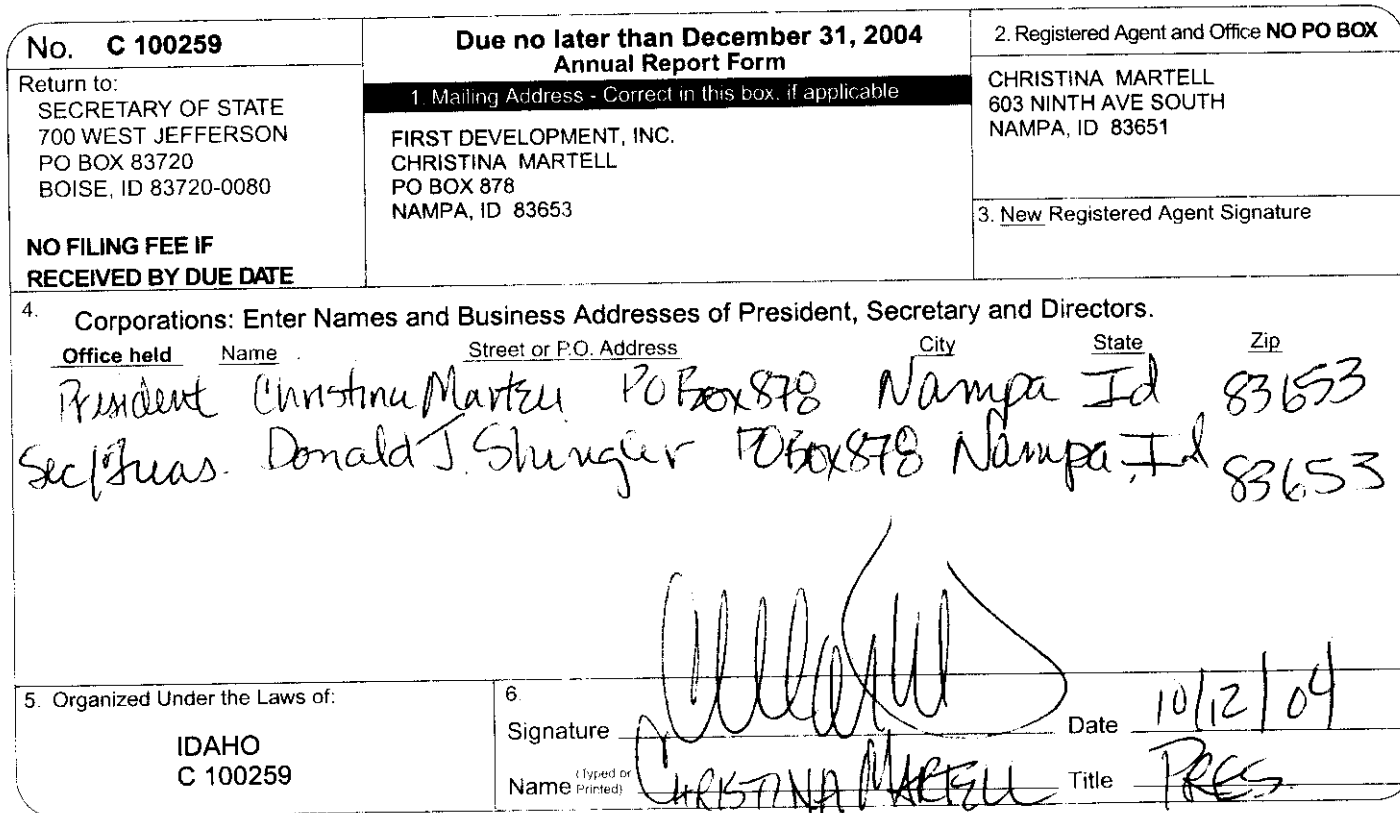 No. C 100259
Return to:
SECRETARY OF STATE
700 WEST JEFFERSON
PO BOX 83720
BOISE, ID 83720-0080
NO FILING FEE IF
RECEIVED BY DUE DATE
Due no later than December 31, 2004
Annual Report Form
1. Mailing Address - Correct in this box, if applicable
FIRST DEVELOPMENT, INC.
CHRISTINA MARTELL
PO BOX 878
NAMPA, ID 83653
2. Registered Agent and Office NO PO BOX
CHRISTINA MARTELL
603 NINTH AVE SOUTH
NAMPA, ID 83651
3. New Registered Agent Signature
4. Corporations: Enter Names and Business Addresses of President, Secretary and Directors.
Office held Name Street or P.O. Address City State Zip
President Christina Martell PO Box 878 Nampa Id 83653
Sec/Treas. Donald J. Shingler PO Box 878 Nampa, Id 83653
5. Organized Under the Laws of:
IDAHO
C 100259
6.
Signature Date 10/12/04
Name (Typed or Printed) CHRISTINA MARTELL Title PRES.